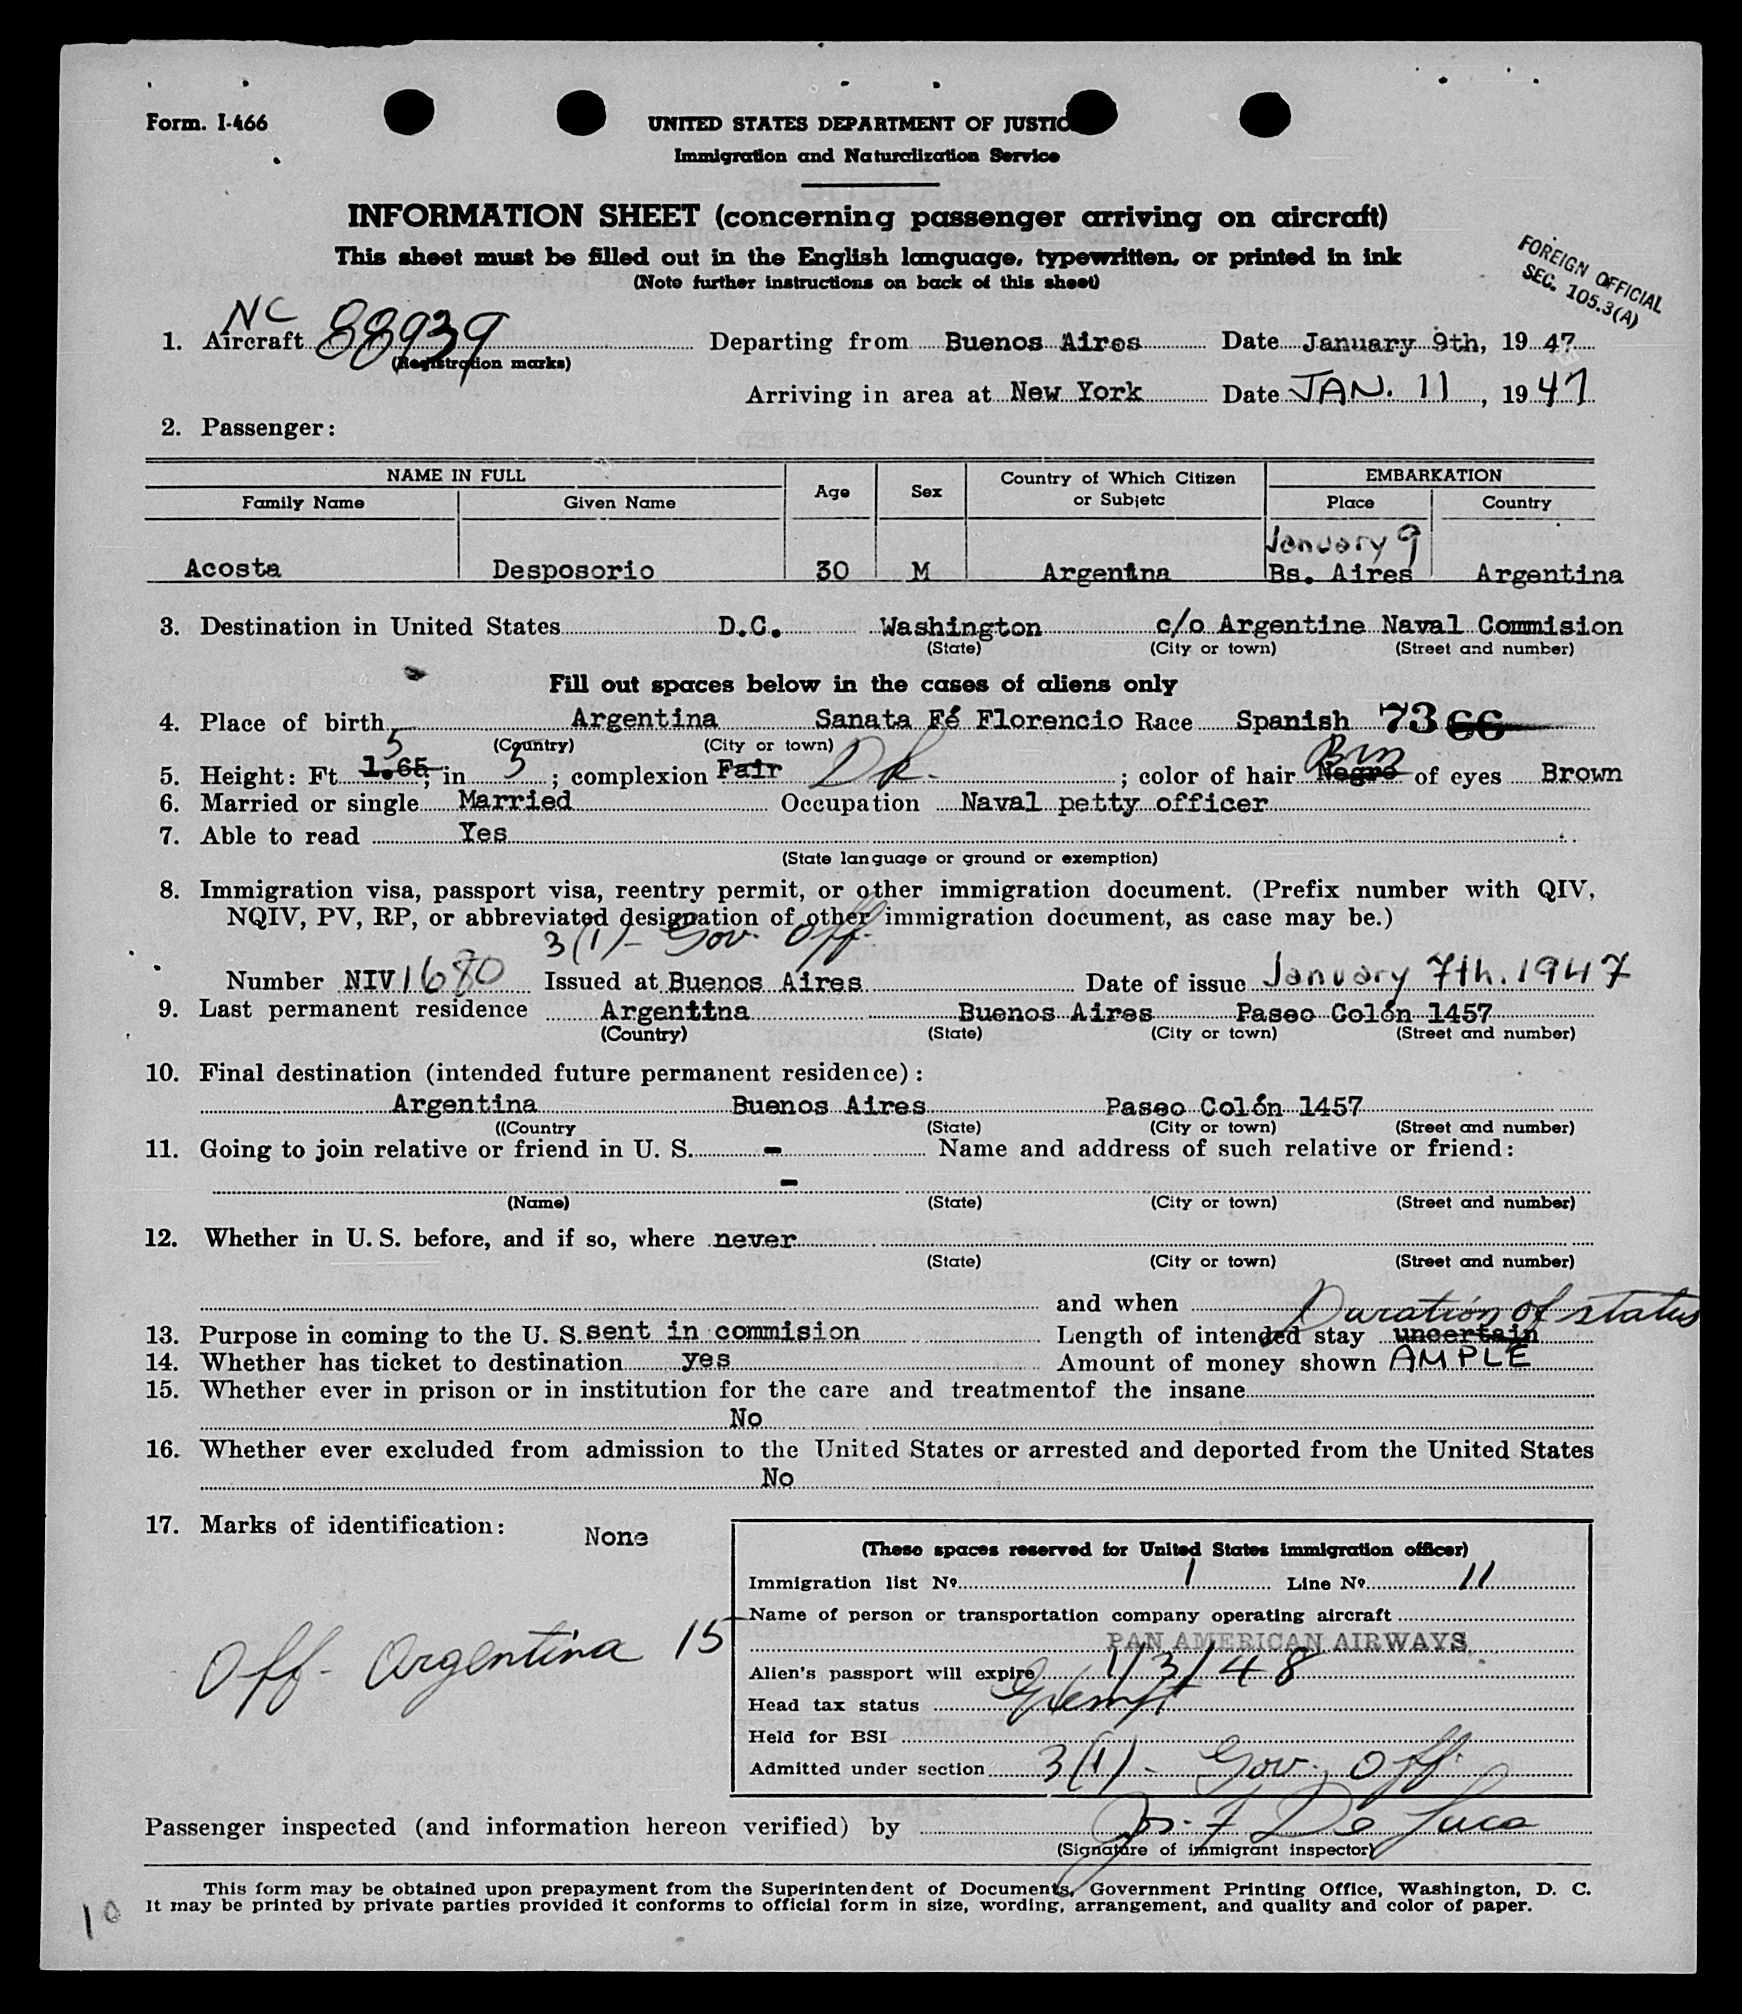 Form. I-466
UNITED STATES DEPARTMENT OF JUSTIC
Immigration and Naturalization Service
INFORMATION SHEET (concerning passenger arriving on aircraft)
This sheet must be filled out in the English language, typewritten, or printed in ink
(Note further instructions on back of this sheet)
FOREIGN OFFICIAL
SEC. 105.3(A)
1. Aircraft NC 88939 Departing from Buenos Aires Date January 9th, 19 47
(Registration marks)
Arriving in area at New York Date JAN. 11, 19 47
2. Passenger:
NAME IN FULL Age Sex Country of Which Citizen or Subjetc EMBARKATION
Family Name Given Name Place Country
January 9
Acosta Desposorio 30 M Argentina Bs. Aires Argentina
3. Destination in United States D.C. Washington c/o Argentine Naval Commision
(State) (City or town) (Street and number)
Fill out spaces below in the cases of aliens only
4. Place of birth Argentina Sanata Fé Florencio Race Spanish 73 66
(Country) (City or town)
5. Height: Ft. 1.65 5; in 5; complexion Fair Dk.; color of hair Negro Brn of eyes Brown
6. Married or single Married Occupation Naval petty officer
7. Able to read Yes
(State language or ground or exemption)
8. Immigration visa, passport visa, reentry permit, or other immigration document. (Prefix number with QIV,
NQIV, PV, RP, or abbreviated designation of other immigration document, as case may be.)
3(1)- Gov. Off.
Number NIV 1680 Issued at Buenos Aires Date of issue January 7th. 1947
9. Last permanent residence Argentina Buenos Aires Paseo Colón 1457
(Country) (State) (City or town) (Street and number)
10. Final destination (intended future permanent residence):
Argentina Buenos Aires Paseo Colón 1457
((Country (State) (City or town) (Street and number)
11. Going to join relative or friend in U. S. - Name and address of such relative or friend:
-
(Name) (State) (City or town) (Street and number)
12. Whether in U. S. before, and if so, where never
(State) (City or town) (Street and number)
and when
Duration of status
13. Purpose in coming to the U. S. sent in commision Length of intended stay uncertain
14. Whether has ticket to destination yes Amount of money shown AMPLE
15. Whether ever in prison or in institution for the care and treatmentof the insane
No
16. Whether ever excluded from admission to the United States or arrested and deported from the United States
No
17. Marks of identification: None
(These spaces reserved for United States immigration officer)
Immigration list Nº 1 Line Nº 11
Name of person or transportation company operating aircraft
PAN AMERICAN AIRWAYS
Off- Argentina 15
Alien's passport will expire 1/3/48
Head tax status Exempt
Held for BSI
Admitted under section 3(1) - Gov. Off.
Passenger inspected (and information hereon verified) by F De Luca
(Signature of immigrant inspector)
This form may be obtained upon prepayment from the Superintendent of Documents, Government Printing Office, Washington, D. C.
It may be printed by private parties provided it conforms to official form in size, wording, arrangement, and quality and color of paper.
10